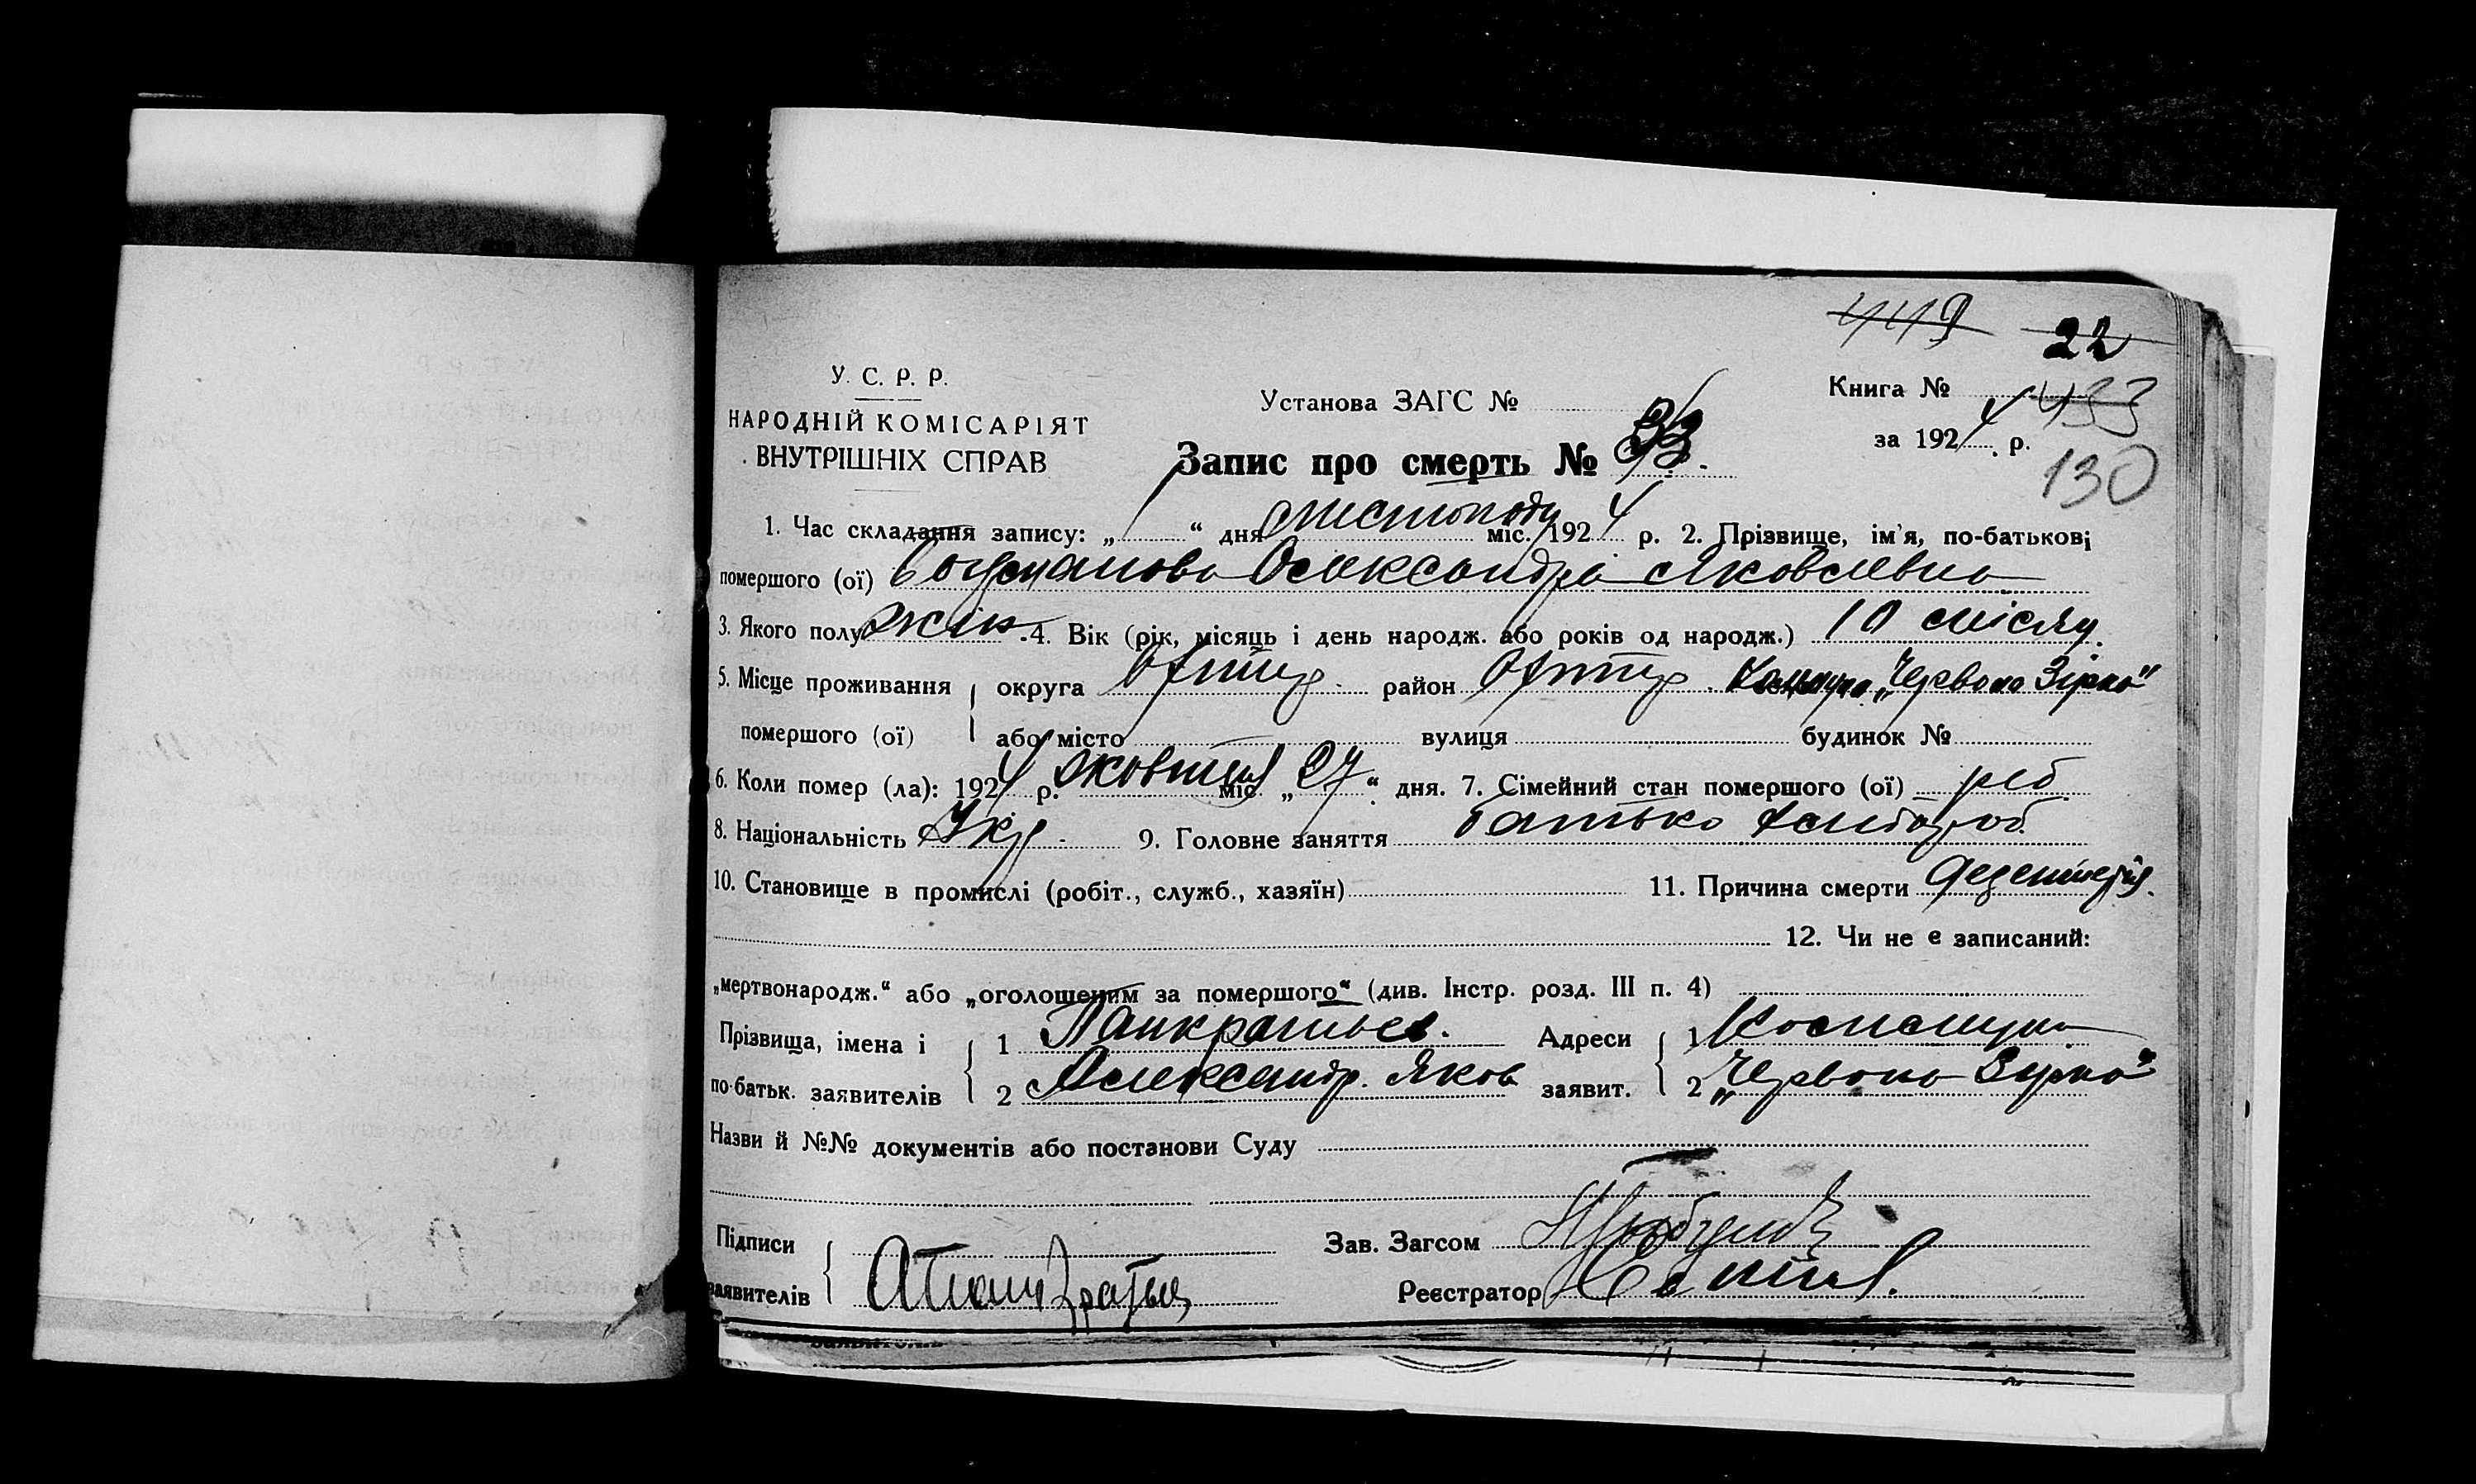 449 22
У. С. Р. Р.
НАРОДНІЙ КОМІСАРІЯТ
ВНУТРІШНІХ СПРАВ
Установа ЗАГС №
Книга № 433
за 1924 р.
130
Запис про смерть № 33
1. Час складання запису: „ 1 “ дня листопаду міс. 1924 р. 2. Прізвище, ім'я, по-батькові
померлого (ої) Олександра Яковлевна
3. Якого полу жін. 4. Вік (рік, місяць і день народж. або років од народж.) 10 місяц.
5. Місце проживання округа район Комуна „Червона Зірка“
померлого (ої) або місто вулиця будинок №
6. Коли помер (ла): 1924 р. жовтня міс. „ 27 “ дня. 7. Сімейний стан померлого (ої)
8. Національність Укр. 9. Головне заняття батько хлібороб
10. Становище в промислі (робіт., служб., хазяїн) 11. Причина смерти дезентерія.
12. Чи не є записаний:
„мертвонародж.“ або „оголошеним за померлого“ (див. Інстр. розд. III п. 4)
Прізвища, імена і 1 Панкратьев. Адреси 1 Комуна
по-батьк. заявителів 2 Александр. Яков заявит. 2 „Червона Зірка“
Назви й №№ документів або постанови Суду
Підписи Зав. Загсом
заявителів АПанкратьев Реєстратор